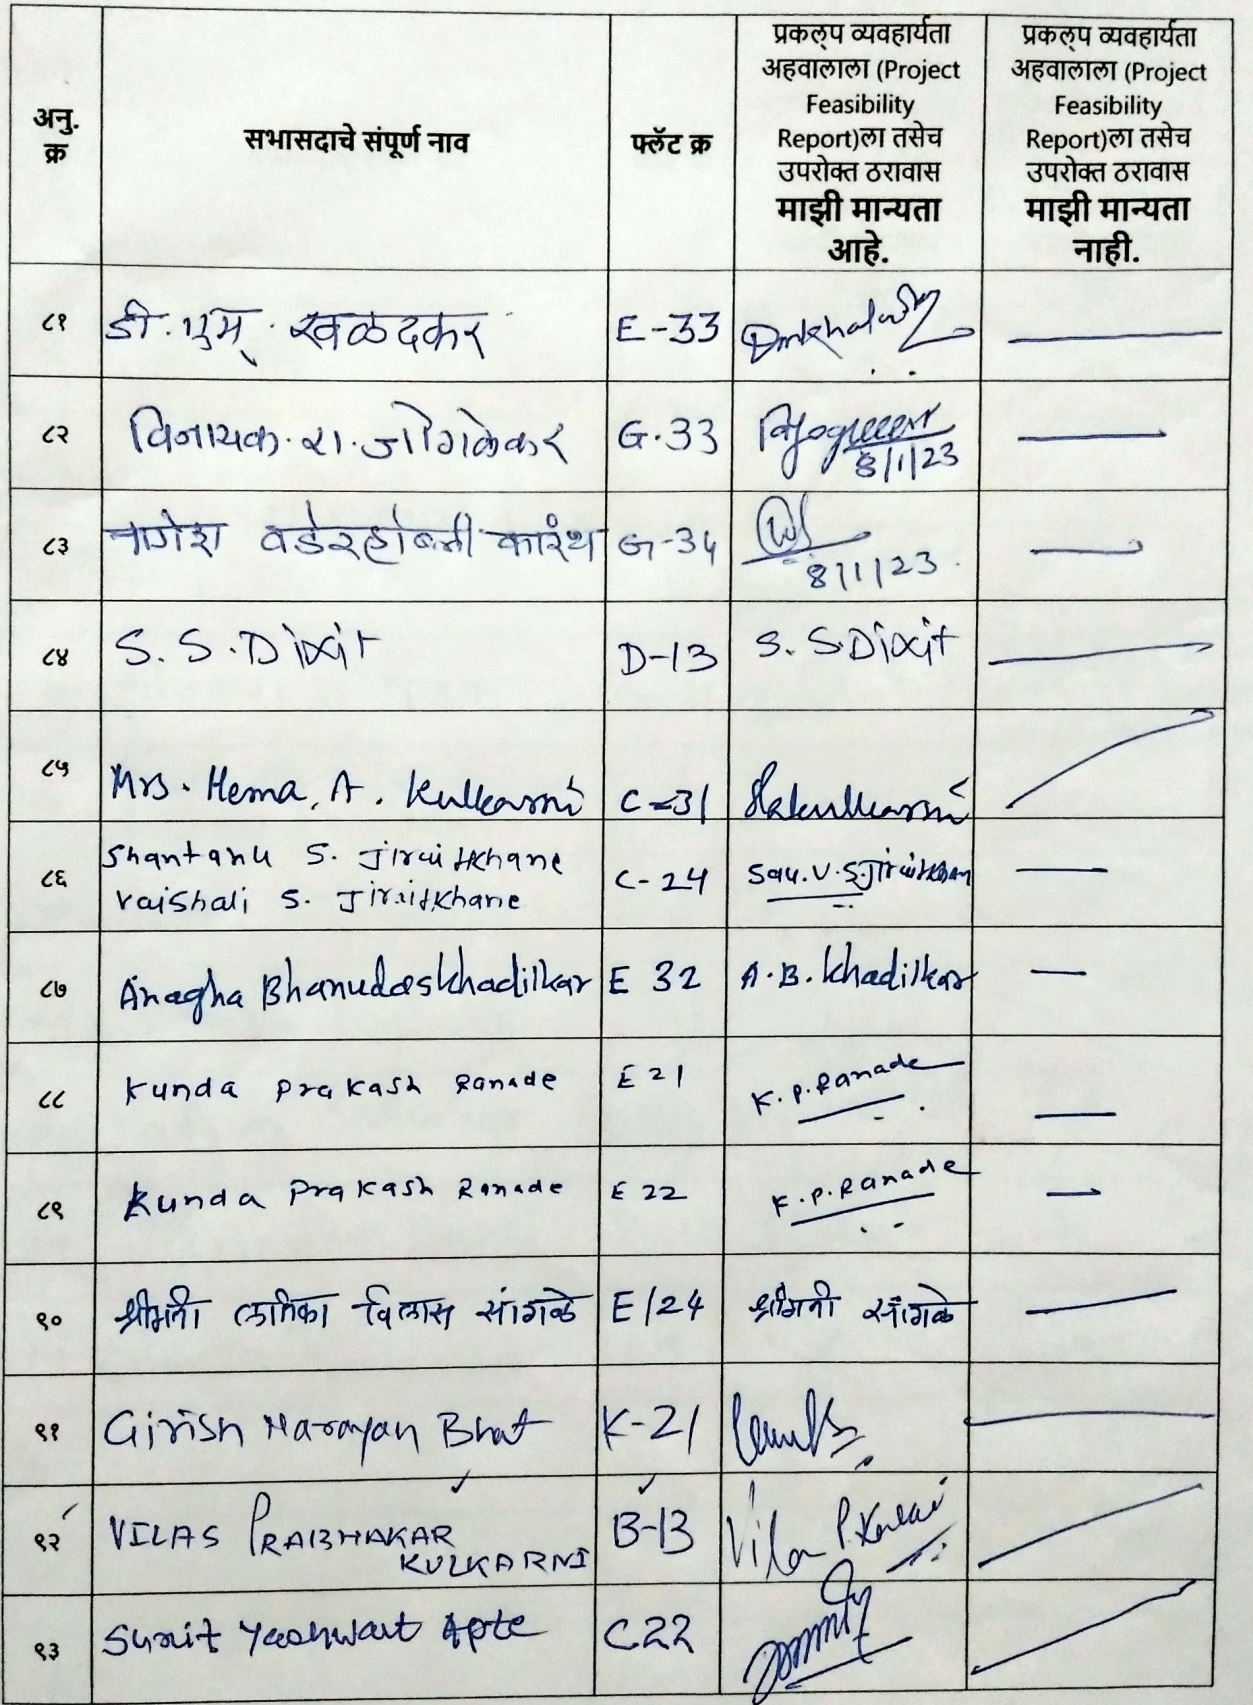 अनु. क्र
सभासदाचे संपूर्ण नाव
फ्लॅट क्र
प्रकल्प व्यवहार्यता
अहवालाला (Project
Feasibility
Report)ला तसेच
उपरोक्त ठरावास
माझी मान्यता
आहे.
प्रकल्प व्यवहार्यता
अहवालाला (Project
Feasibility
Report)ला तसेच
उपरोक्त ठरावास
माझी मान्यता
नाही.
८१ डी. एम्. खळदकर E-33
८२ विनायक. रा. जोगळेकर G.33
8/1/23
८३ नागेश वडेरहोबळी कारंथ G-34
8/1/23.
८४ S. S. Dixit D-13 S. S. Dixit
८५ Mrs. Hema. A. Kulkarni C-31 Hakulkarni
८६ Shantanu S. Jiraitkhane C-24 Sau. V. S. Jiraitkhan
Vaishali S. Jiraitkhane
८७ Anagha Bhanudas Khadilkar E 32 A. B. Khadilkar
८८ Kunda Prakash Ranade E 21 K. P. Ranade
८९ Kunda Prakash Ranade E 22 K. P. Ranade
९० श्रीमती लतिका विलास सांगळे E/24 श्रीमती सांगळे
९१ Girish Narayan Bhat K-21
९२ VILAS PRABHAKAR B-13
KULKARNI
९३ Sumit Yashwant Apte C22